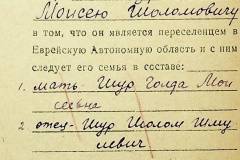 Моисею Шоломовичу
в том, что он является переселенцем в
Еврейскую Автономную область и с ним
следует его семья в составе:
1. мать Шур Голда Мои
сеевна
2 отец - Шур Шолом Шму
левич